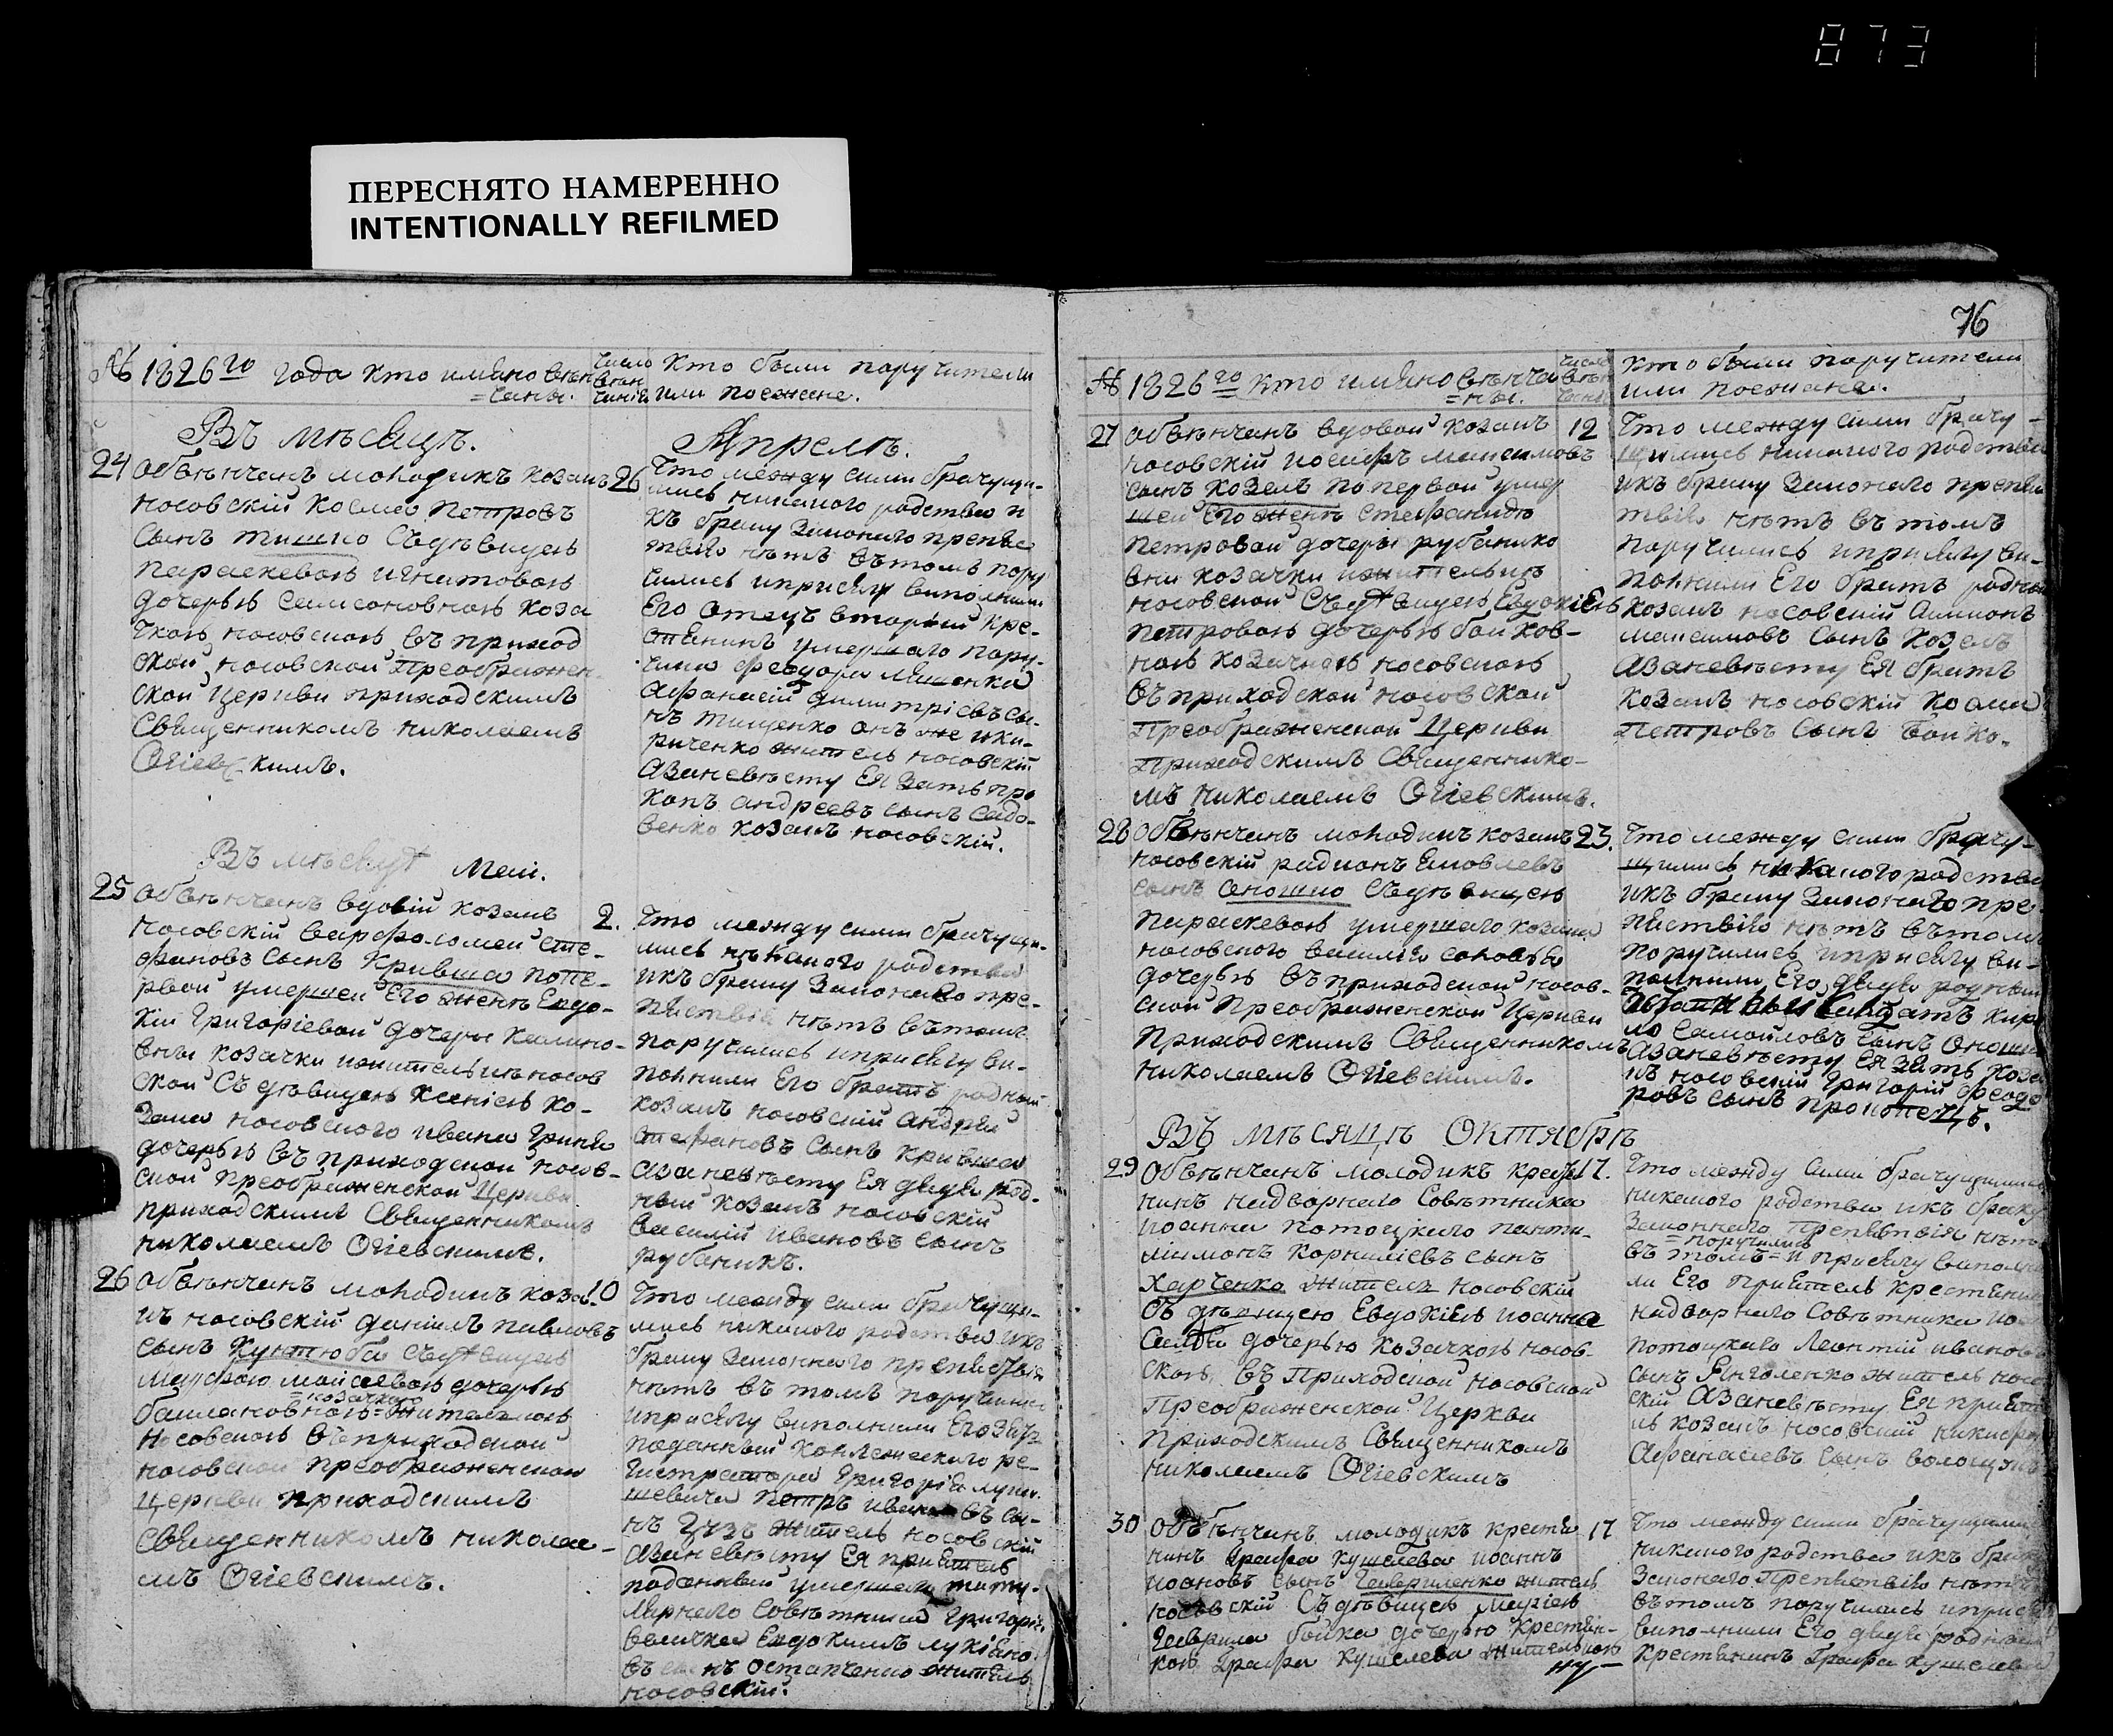 873
ПЕРЕСНЯТО НАМЕРЕННО
INTENTIONALLY REFILMED
76
№ 1826го года кто имяно вѣн
=чаны.
число
вѣн
чанія
Кто были поручители
или поежане.
Въ мѣсяцѣ.
Апрелѣ.
24 Обвѣнчанъ молодикъ козакъ
носовскій Косма Петровъ
Сынъ Тишко Съ дѣвицею
Параскевою игнатовою
дочерью Самсоновною коза
чкою носовскою въ приход
ской носовской Преображен
ской Церкви приходскимъ
Священникомъ николаемъ
Огіевскимъ.
26 Что между сими брачущи-
мись никакого родства и
къ браку законаго препя
твія нѣтъ вътомъ пору
чились иприсягу виполнили
Его отецъ кре-
стянинъ умершаго пору-
чика феодора Ляшенка
Афанасій димитріевъ сы-
нъ тищенко онъ же ики-
риченко житель носовскій
Азаневѣсту Ея Зять про
копъ андреевъ сынъ Садо-
венко козакъ носовскій.
Въ мѣсяцѣ Маи.
25 Обвѣнчанъ вдовій козакъ
носовскій варфоломей сте-
фановъ сынъ Кривша попе-
рвой умершей Его женѣ Евдо-
кіи григоріевой дочери Калино-
вны козачки ижительки носов
ской Съ дѣвицею Ксеніею ко-
зака носовского ивана Гриня
дочерью въ приходской носов-
ской Преображенской Церкви
приходскимъ Священникомъ
николаемъ Огіевскимъ.
2. Что между сими брачущи-
мись никакого родства
икъ браку законаго пре-
пятствія нѣтъ вътомъ
поручились иприсягу ви-
полнили Его братъ родный
козакъ носовскій андрей
стефановъ сынъ кривша
азаневѣсту Ея дядя род-
ный козакъ носовскій
василій ивановъ сынъ
рубаникъ.
26 Обвѣнчанъ молодикъ коза-
къ носовскій даніилъ павловъ
сынъ Кунтюба Съдѣвицею
Марфою моисеевою дочерью
=козачкою
башлаковною=жителкою
носовскою въприходской
носовской преображенской
церкви приходскимъ
Священникомъ никола-
мъ Огіевскимъ.
10 Что между сими брачущи-
мись никакого родства икъ
браку законнаго препятствія
нѣтъ въ томъ поручились
иприсягу виполнили Его
поданный Коллежского ре-
гистратора Григорія
Петръ ивановъ сы-
нъ Гузъ житель носовскій
азаневѣсту Ея приятель
поданный умершаго титу-
лярнаго Совѣтника Григорія
величка Евдокимъ лукіяно
въ сынъ остапченко житель
носовскій.
№ 1826го кто имяно вѣнча
=ны.
число
вѣн
чанія
Кто были поручители
или поежана.
27 Обвѣнчанъ вдовой козакъ
носовскій иосифъ максимовъ
сынъ козелъ по первой умер
шей Его женѣ Стефанидѣ
петровой дочери рубанико
вни козачки ижителькѣ
носовской Съдѣвицею Евдокіею
петровою дочерью бойков-
ною козачкою носовскою
въприходской носовской
Преображенской Церкви
Приходскимъ Священнико-
мъ николаемъ Огіевскимъ.
12 Что между сими брачу-
щимись никакого родства
икъ браку Законаго препя
твія нѣтъ въ томъ
поручились иприсягу ви-
полнили Его братъ родный
козакъ носовскій Симионъ
максимовъ сынъ козелъ
азаневѣсту Ея братъ
козакъ носовскій косма
Петровъ сынъ Бойко.
28 Обвѣнчанъ молодикъ козакъ
носовскій радионъ яковлевъ
сынъ Оношко Съдѣвицею
Параскевою умершаго козака
носовского василія
дочерью въприходской носов-
ской Преображенской Церкви
Приходскимъ Священникомъ
николаемъ Огіевскимъ.
23. Что между сими брачу-
щимись никакого родства
икъ браку законаго пре-
пятствія нѣтъ вътомъ
поручились иприсягу ви-
полнили Его дядя родный
кири
ло Самойловъ сынъ Оношко
азаневѣсту Ея Зять коза
къ носовскій григорій феодо
ровъ сынъ прокопецъ.
Въ мѣсяцѣ Октябрѣ
29 Обвѣнчанъ молодикъ крестя
нинъ надворнаго Совѣтника
иоанна потоцкаго панти-
лимонъ корниліевъ сынъ
Харченко житель носовскій
съ дѣвицею Евдокіею иоанна
дочерью козачкою носов-
скою въ Приходской носовской
Преображенской Церкви
Приходскимъ Священникомъ
николаемъ Огіевскимъ
17. Что между сими брачущимись
никакого родства икъ браку
законнаго препятствія нѣтъ
=поручились
въ томъ=и присягу виполни
ли Его приятель крестянинъ
надворнаго Совѣтника ио
потоцкаго Леонтій иванов
сынъ Янголенко житель носо
скій Азаневѣсту Ея прияте
ль козакъ носовскій никифоръ
Афанасіевъ сынъ волощукъ
30 Обвѣнчанъ молодикъ крестя
нинъ Графа Кушелева иоаннъ
иоановъ сынъ Гавриленко житель
носовскій Съдѣвицею Маріею
Гаврила бойка дочерью крестян-
кою Графа Кушелева жителькою
17 Что между сими брачущими
никакого родства икъ браку
Законаго Препятствія нѣтъ
вътомъ поручились иприся
виполнили Его дядя родный
крестянинъ Графа Кушелева